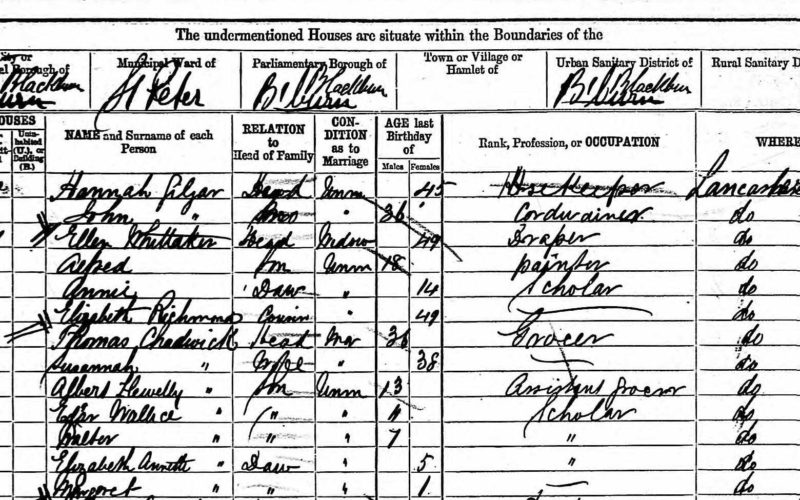 The undermentioned Houses are situate within the Boundaries of the
City or
Municipal Ward of
Parliamentary Borough of
Town or Village or
Hamlet of
Urban Sanitary District of
Rural Sanitary D
el Borough of
Blackburn
St Peter
Blackburn
Blackburn
OUSES
Unin-
habited
(U.), or
Building
(B.)
NAME and Surname of each
Person
RELATION
to
Head of Family
CON-
DITION
as to
Marriage
AGE last
Birthday
of
Males
Females
Rank, Profession, or OCCUPATION
WHERE
Hannah Head Unm 45 Lancashire
John " 36 Cordwainer do
Ellen Whittaker Head Widow 49 Draper do
Alfred Son Unm 18 painter do
Annie Daw " 14 Scholar do
Elizabeth Richmond Cousin " 49 do
Thomas Chadwick Head Mar 36 Grocer do
Susannah " Wife " 38 do
Albert Llewelly " Son Unm 13 Assistant grocer do
Edgar Wallace " " " 11 Scholar do
Walter " " " 7 " do
Elizabeth Annette " Daw " 5 " do
Margaret " " " 1 do